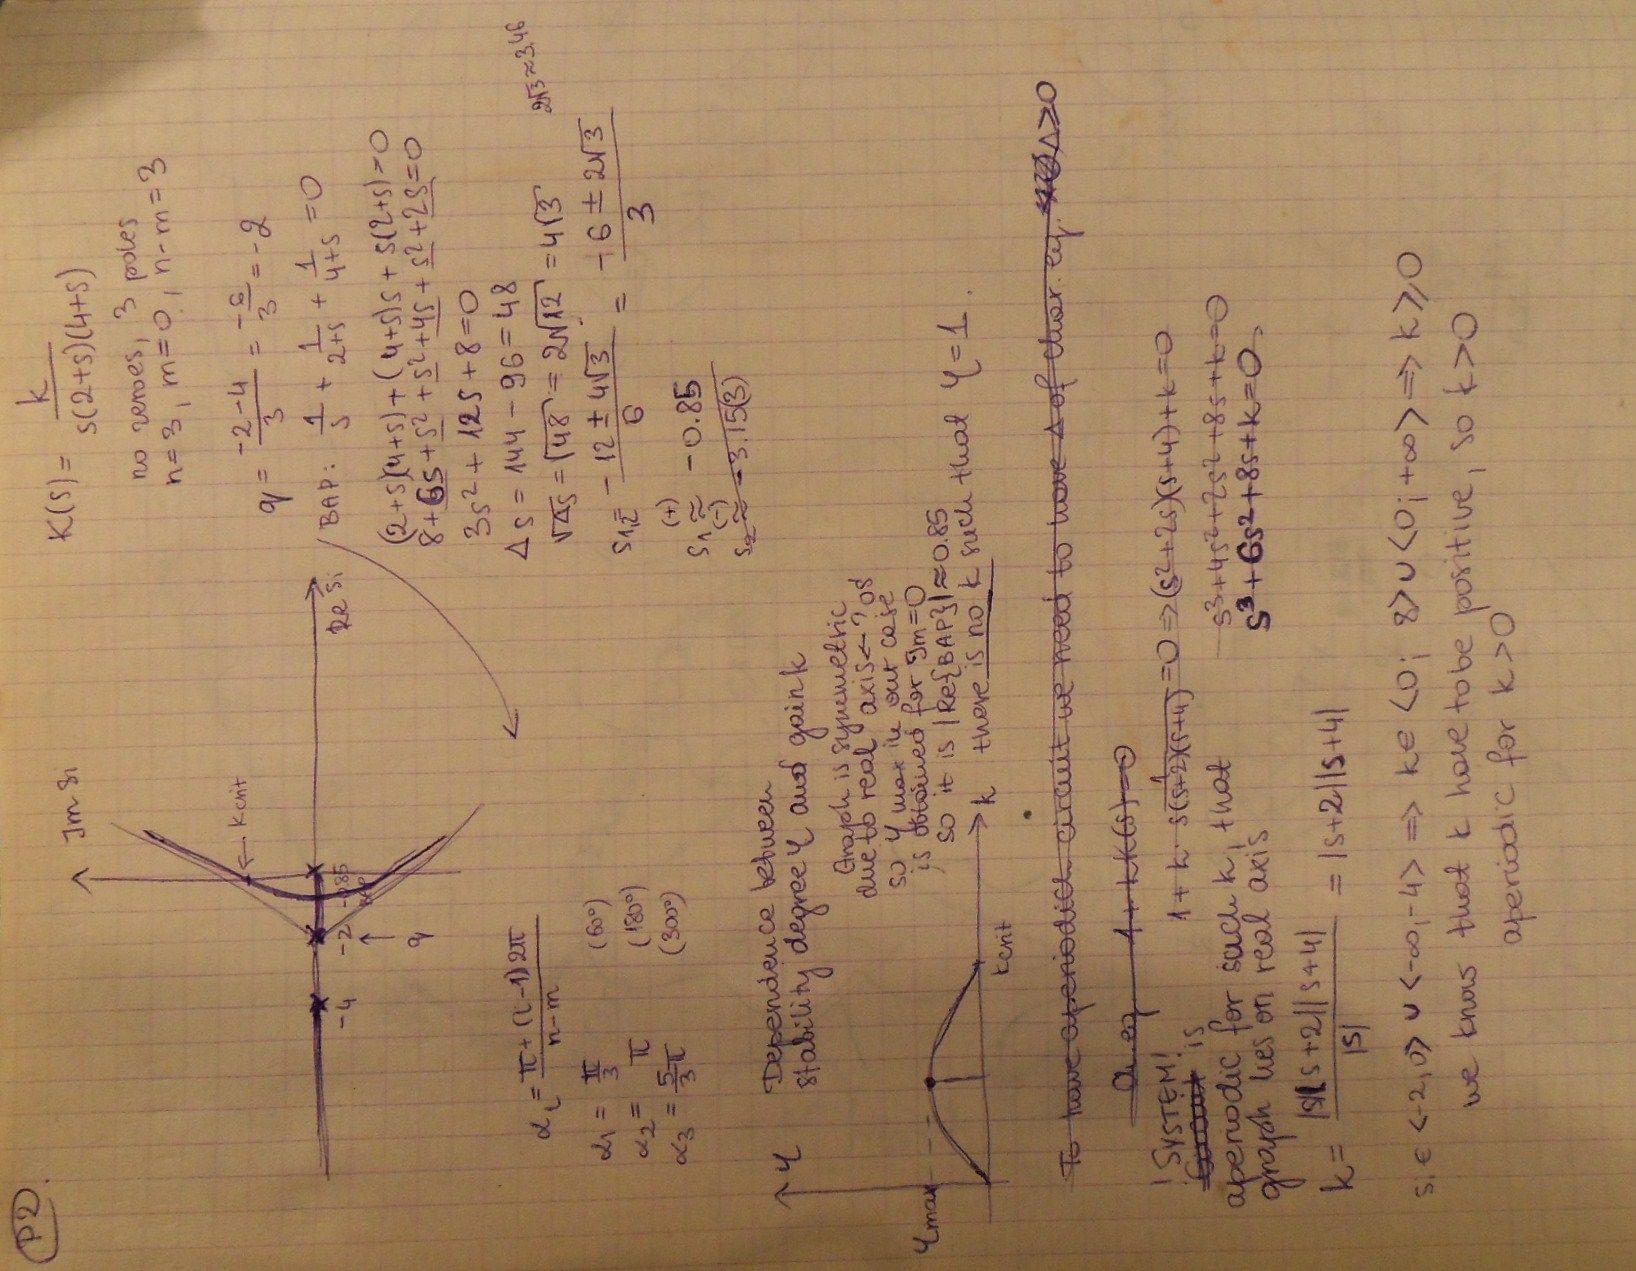 P2.
K(s) = k / s(2+s)(4+s)
no zeroes, 3 poles
n=3, m=0, n-m=3
q = -2-4 / 3 = -6/3 = -2
BAP: 1/s + 1/2+s + 1/4+s = 0
(2+s)(4+s) + (4+s)s + s(2+s)=0
8+6s+s²+s²+4s+s²+2s=0
3s²+12s+8=0
Δs = 144-96=48
√Δs = √48 = 2√12 = 4√3
2√3≈3.46
s1,2 = -12 ± 4√3 / 6 = -6 ± 2√3 / 3
s1 (+) ≈ -0.85
s2 (-) ≈ -3.15(3)
Im si
kcrit
Re si
-4
-2
-0.85
BAP
q
αi = π+(i-1)2π / n-m
α1 = π/3 (60°)
α2 = π (180°)
α3 = 5/3 π (300°)
Dependence between
stability degree η and gain k
η
ηmax
kcrit
k
Graph is symmetric
due to real axis ←?os
so η max in our case
is obtained for Im=0
so it is |Re{BAP}|≈0.85
there is no k such that η=1.
To have aperiodic circuit we need to have Δ of char. eq. Δ≥0
1+kK(s)=0
! SYSTEM! is
aperiodic for such k, that
graph lies on real axis
1+k · 1/s(s+2)(s+4) =0 ⇒ (s²+2s)(s+4)+k=0
s³+4s²+2s²+8s+k=0
s³+6s²+8s+k=0,
k = |s||s+2||s+4| / |s| = |s+2||s+4|
si ∈ <-2,0> ∪ <-∞,-4> ⇒ k∈ <0; 8> ∪ <0; +∞> ⇒ k≥0
we know that k have to be positive, so k>0
aperiodic for k>0